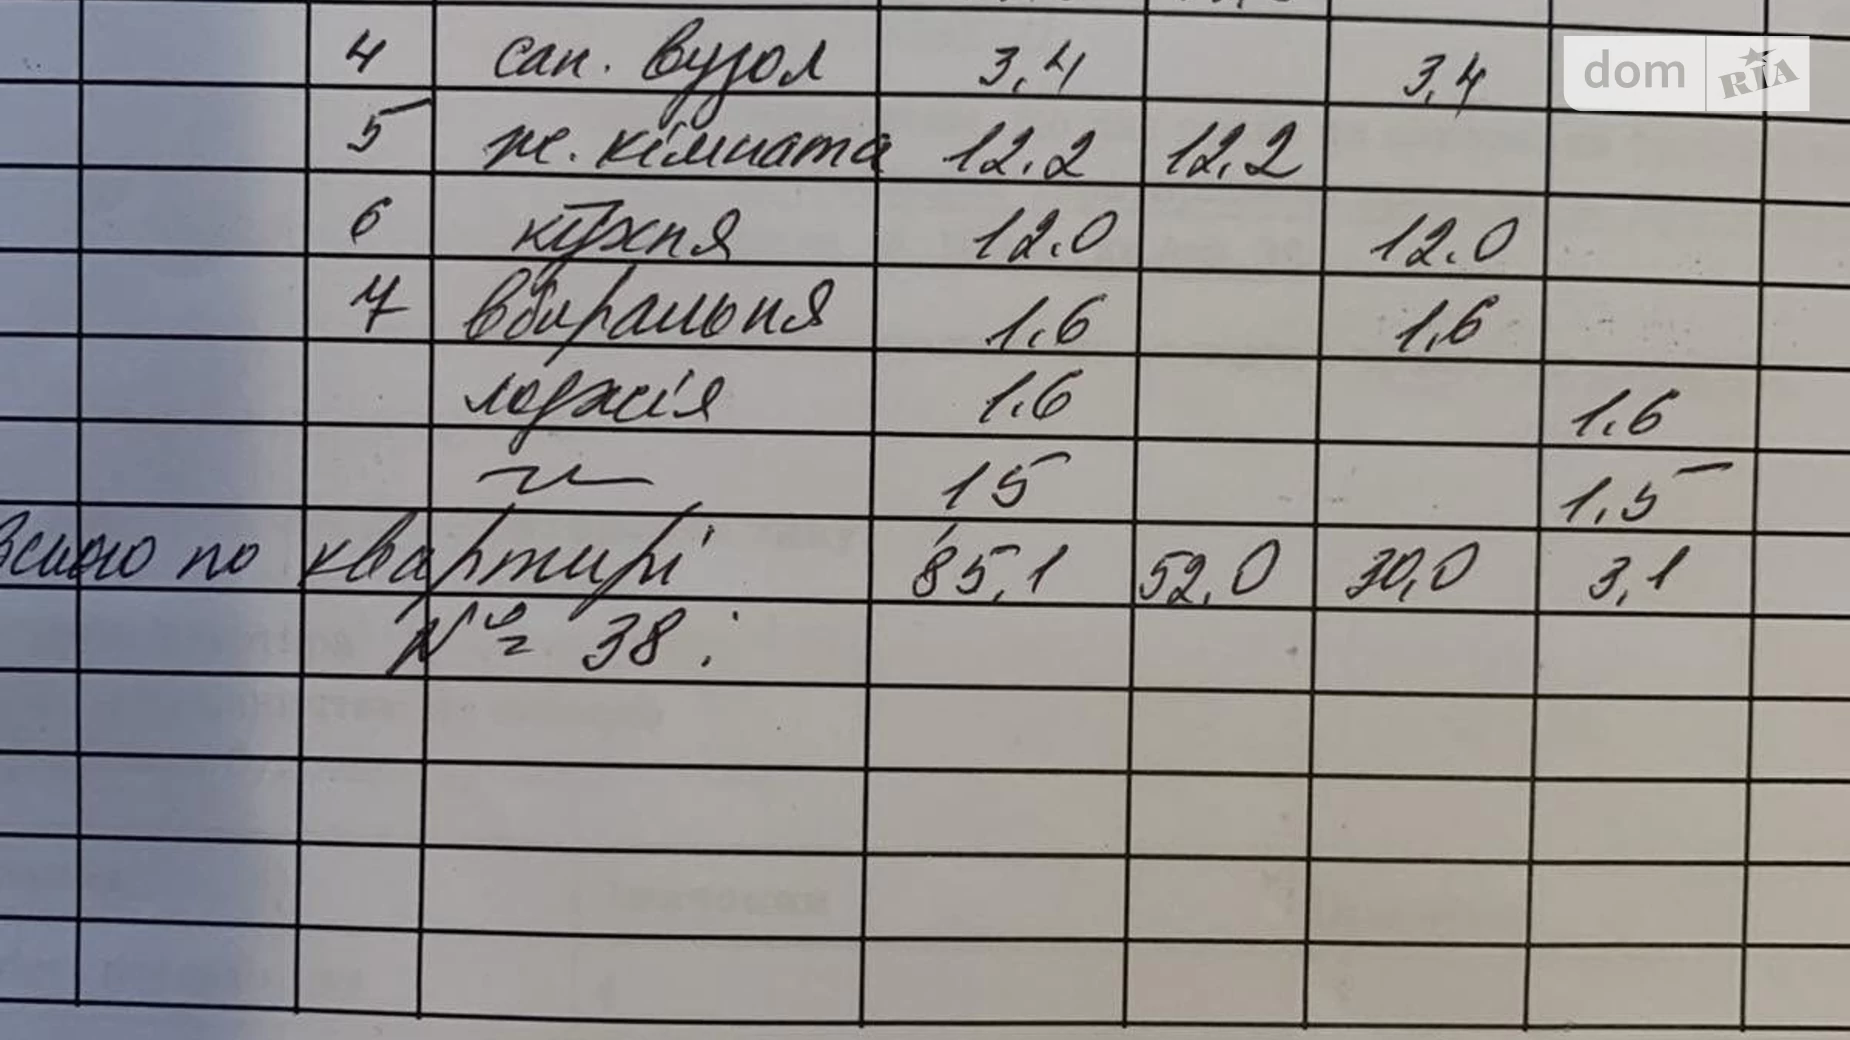 4 сан. вузол 3,4 3,4
dom RIA
5 ж. кімната 12.2 12.2
6 кухня 12.0 12.0
7 вбиральня 1,6 1,6
лоджія 1.6 1.6
15 1,5
Всього по квартирі 85,1 52,0 30,0 3,1
№ 38: